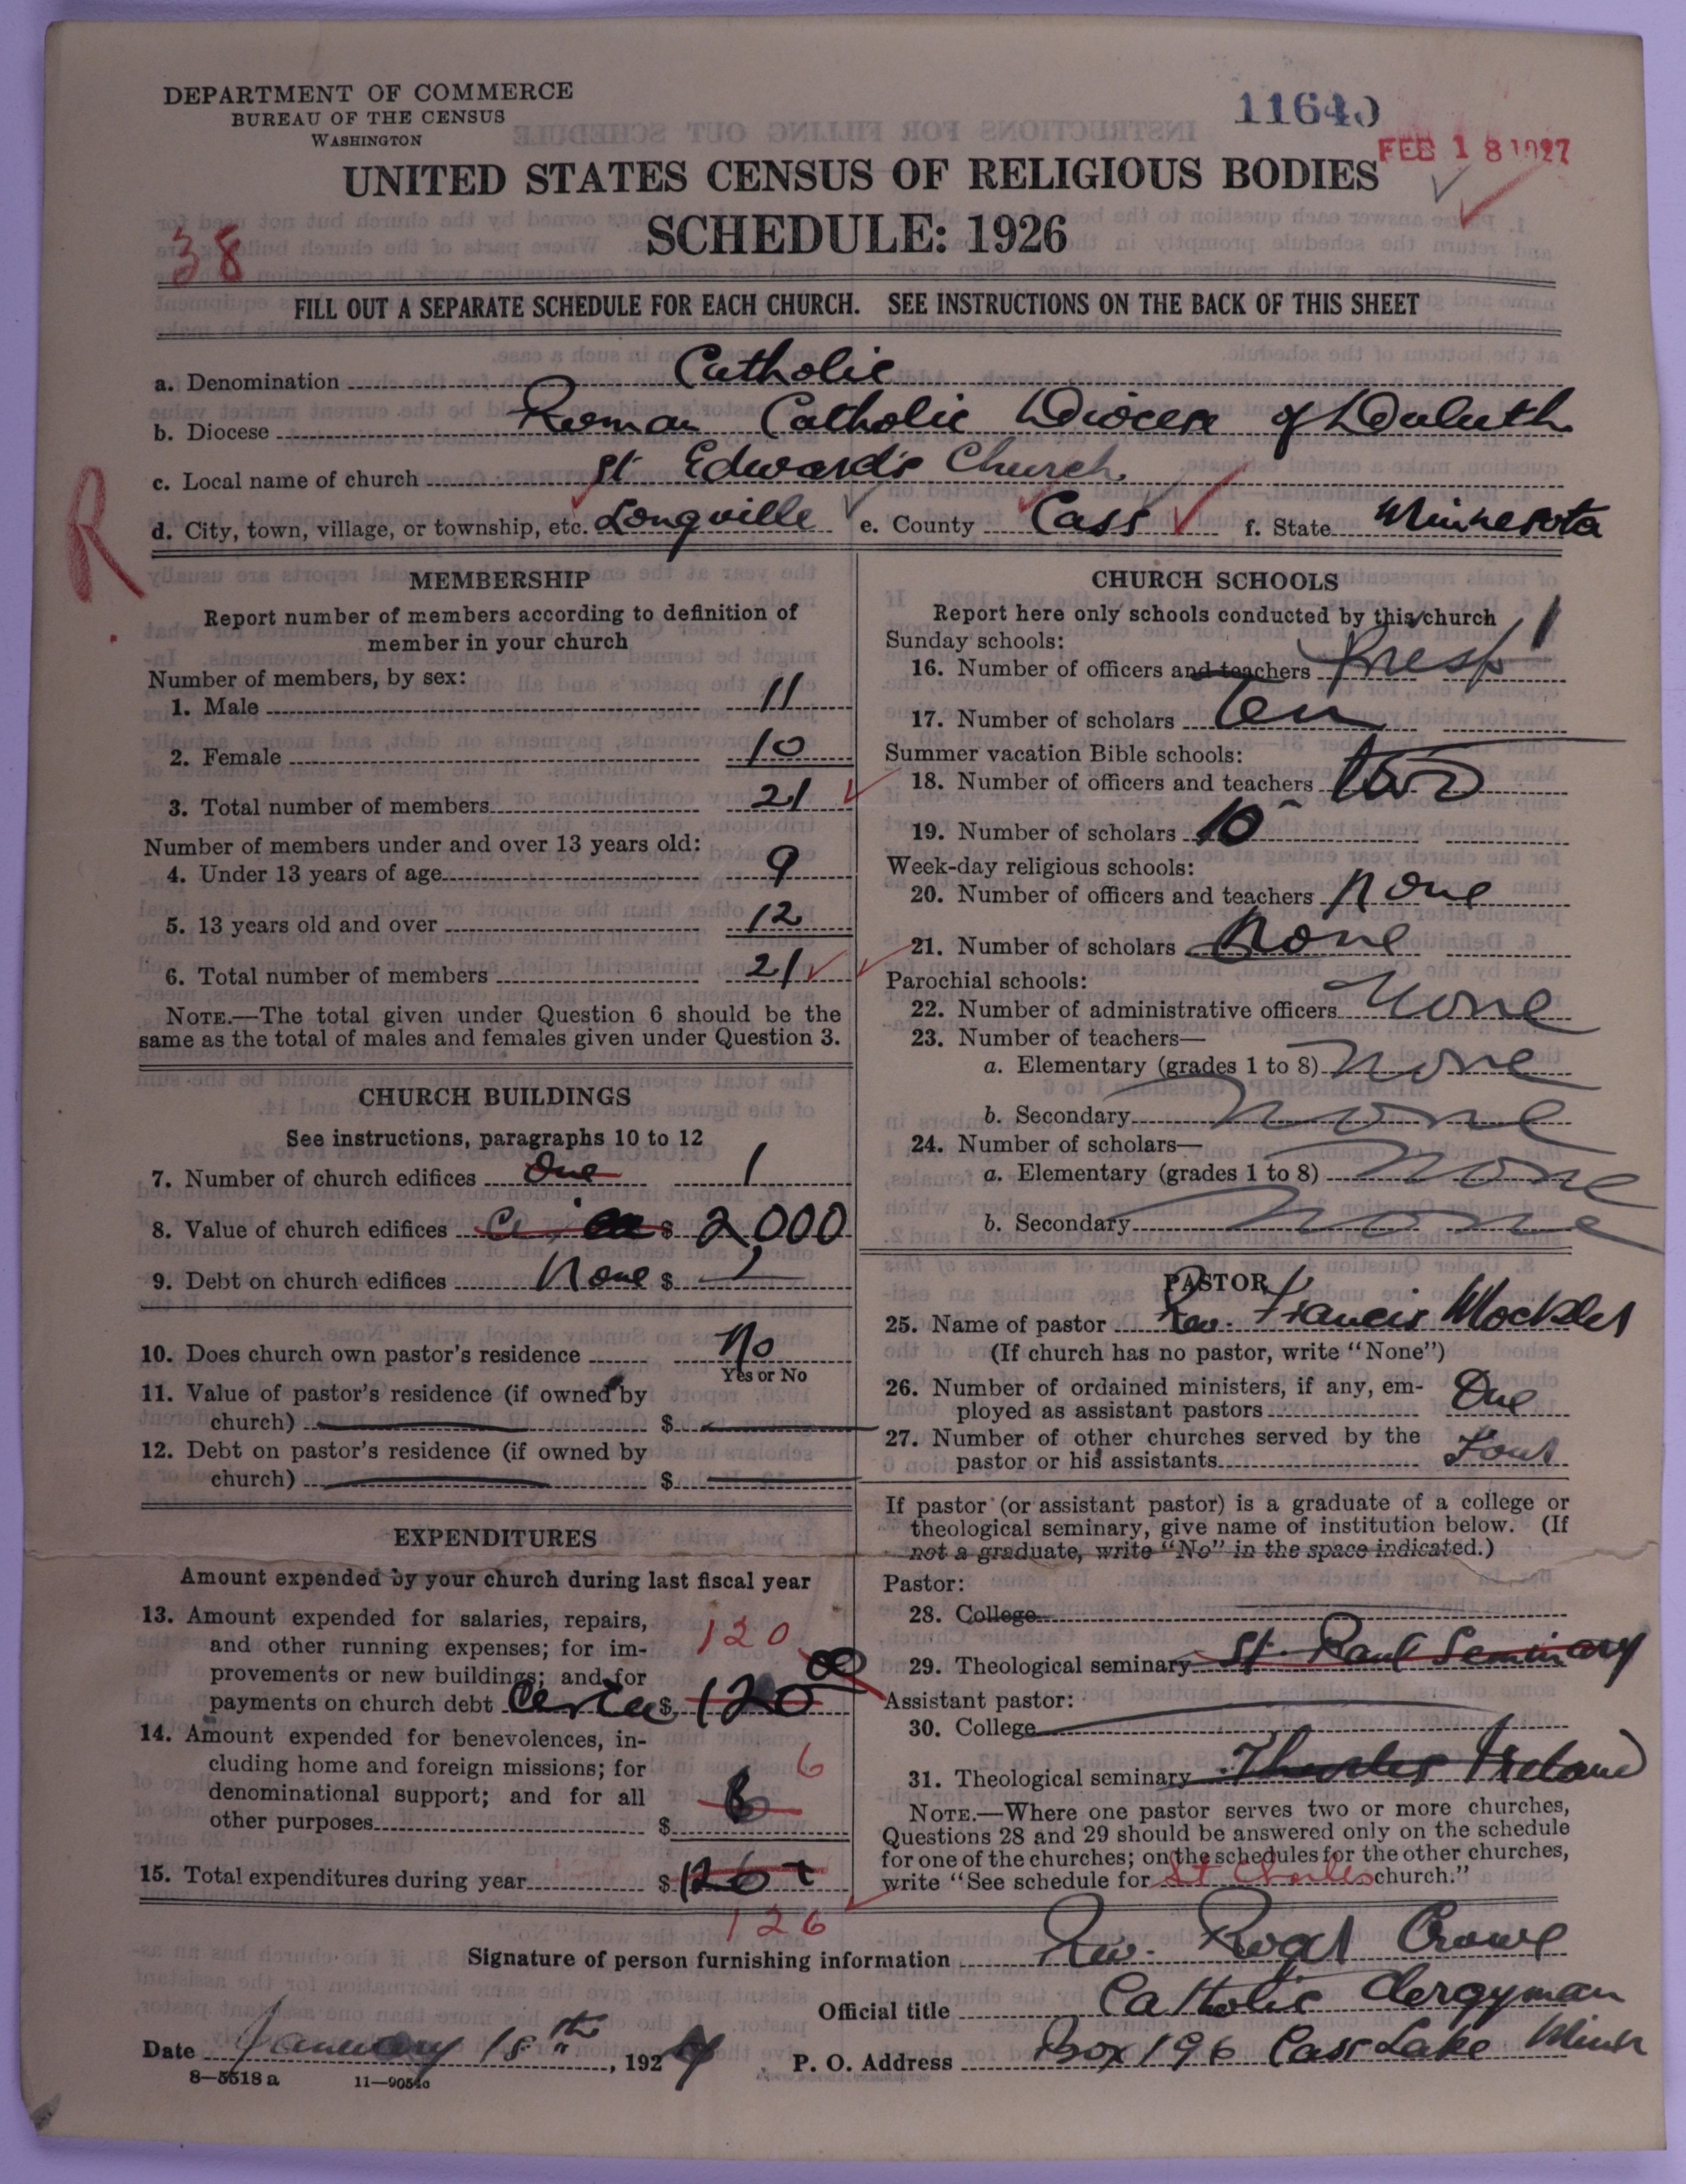 DEPARTMENT OF COMMERCE
BUREAU OF THE CENSUS
WASHINGTON
11640
FEB 18 1927
UNITED STATES CENSUS OF RELIGIOUS BODIES
SCHEDULE: 1926
38
FILL OUT A SEPARATE SCHEDULE FOR EACH CHURCH. SEE INSTRUCTIONS ON THE BACK OF THIS SHEET
a. Denomination Catholic
b. Diocese Roman Catholic Diocese of Duluth
c. Local name of church St Edward's Church
R
d. City, town, village, or township, etc. Longville e. County Cass f. State Minnesota
MEMBERSHIP
Report number of members according to definition of
member in your church
Number of members, by sex:
1. Male 11
2. Female 10
3. Total number of members 21
Number of members under and over 13 years old:
4. Under 13 years of age 9
5. 13 years old and over 12
6. Total number of members 21
NOTE.—The total given under Question 6 should be the
same as the total of males and females given under Question 3.
CHURCH BUILDINGS
See instructions, paragraphs 10 to 12
7. Number of church edifices One 1
8. Value of church edifices $ 2000
9. Debt on church edifices None $
10. Does church own pastor's residence No
Yes or No
11. Value of pastor's residence (if owned by
church) $
12. Debt on pastor's residence (if owned by
church) $
EXPENDITURES
Amount expended by your church during last fiscal year
13. Amount expended for salaries, repairs,
and other running expenses; for im-
provements or new buildings; and for
payments on church debt $ 120 00
120
14. Amount expended for benevolences, in-
cluding home and foreign missions; for
denominational support; and for all
other purposes $ 6
6
15. Total expenditures during year $ 126
126
CHURCH SCHOOLS
Report here only schools conducted by this church
Sunday schools:
16. Number of officers and teachers 1
17. Number of scholars Ten
Summer vacation Bible schools:
18. Number of officers and teachers two
19. Number of scholars 10
Week-day religious schools:
20. Number of officers and teachers None
21. Number of scholars None
Parochial schools:
22. Number of administrative officers None
23. Number of teachers—
a. Elementary (grades 1 to 8) None
b. Secondary None
24. Number of scholars—
a. Elementary (grades 1 to 8) None
b. Secondary None
PASTOR
25. Name of pastor Rev. Francis Mockler
(If church has no pastor, write "None")
26. Number of ordained ministers, if any, em-
ployed as assistant pastors One
27. Number of other churches served by the
pastor or his assistants Four
If pastor (or assistant pastor) is a graduate of a college or
theological seminary, give name of institution below. (If
not a graduate, write "No" in the space indicated.)
Pastor:
28. College
29. Theological seminary St. Paul Seminary
Assistant pastor:
30. College
31. Theological seminary Thurles Ireland
NOTE.—Where one pastor serves two or more churches,
Questions 28 and 29 should be answered only on the schedule
for one of the churches; on the schedules for the other churches,
write "See schedule for St Charles church."
Signature of person furnishing information Rev. Crowe
Official title Catholic Clergyman
Date January 18th, 1927 P. O. Address Box 196 Cass Lake Minn
8—5518 a 11—9054a